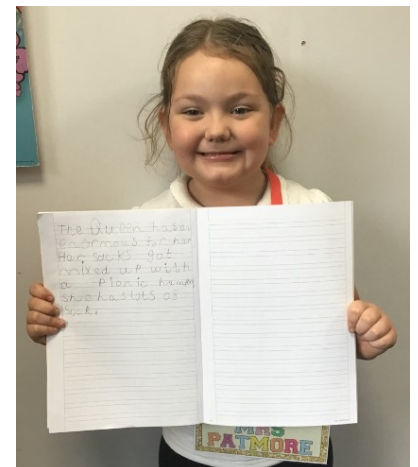 The Queen has a
enormous
Her socks got
mixed up with
a Picnic hamper
she has lots of
MRS
PATMORE